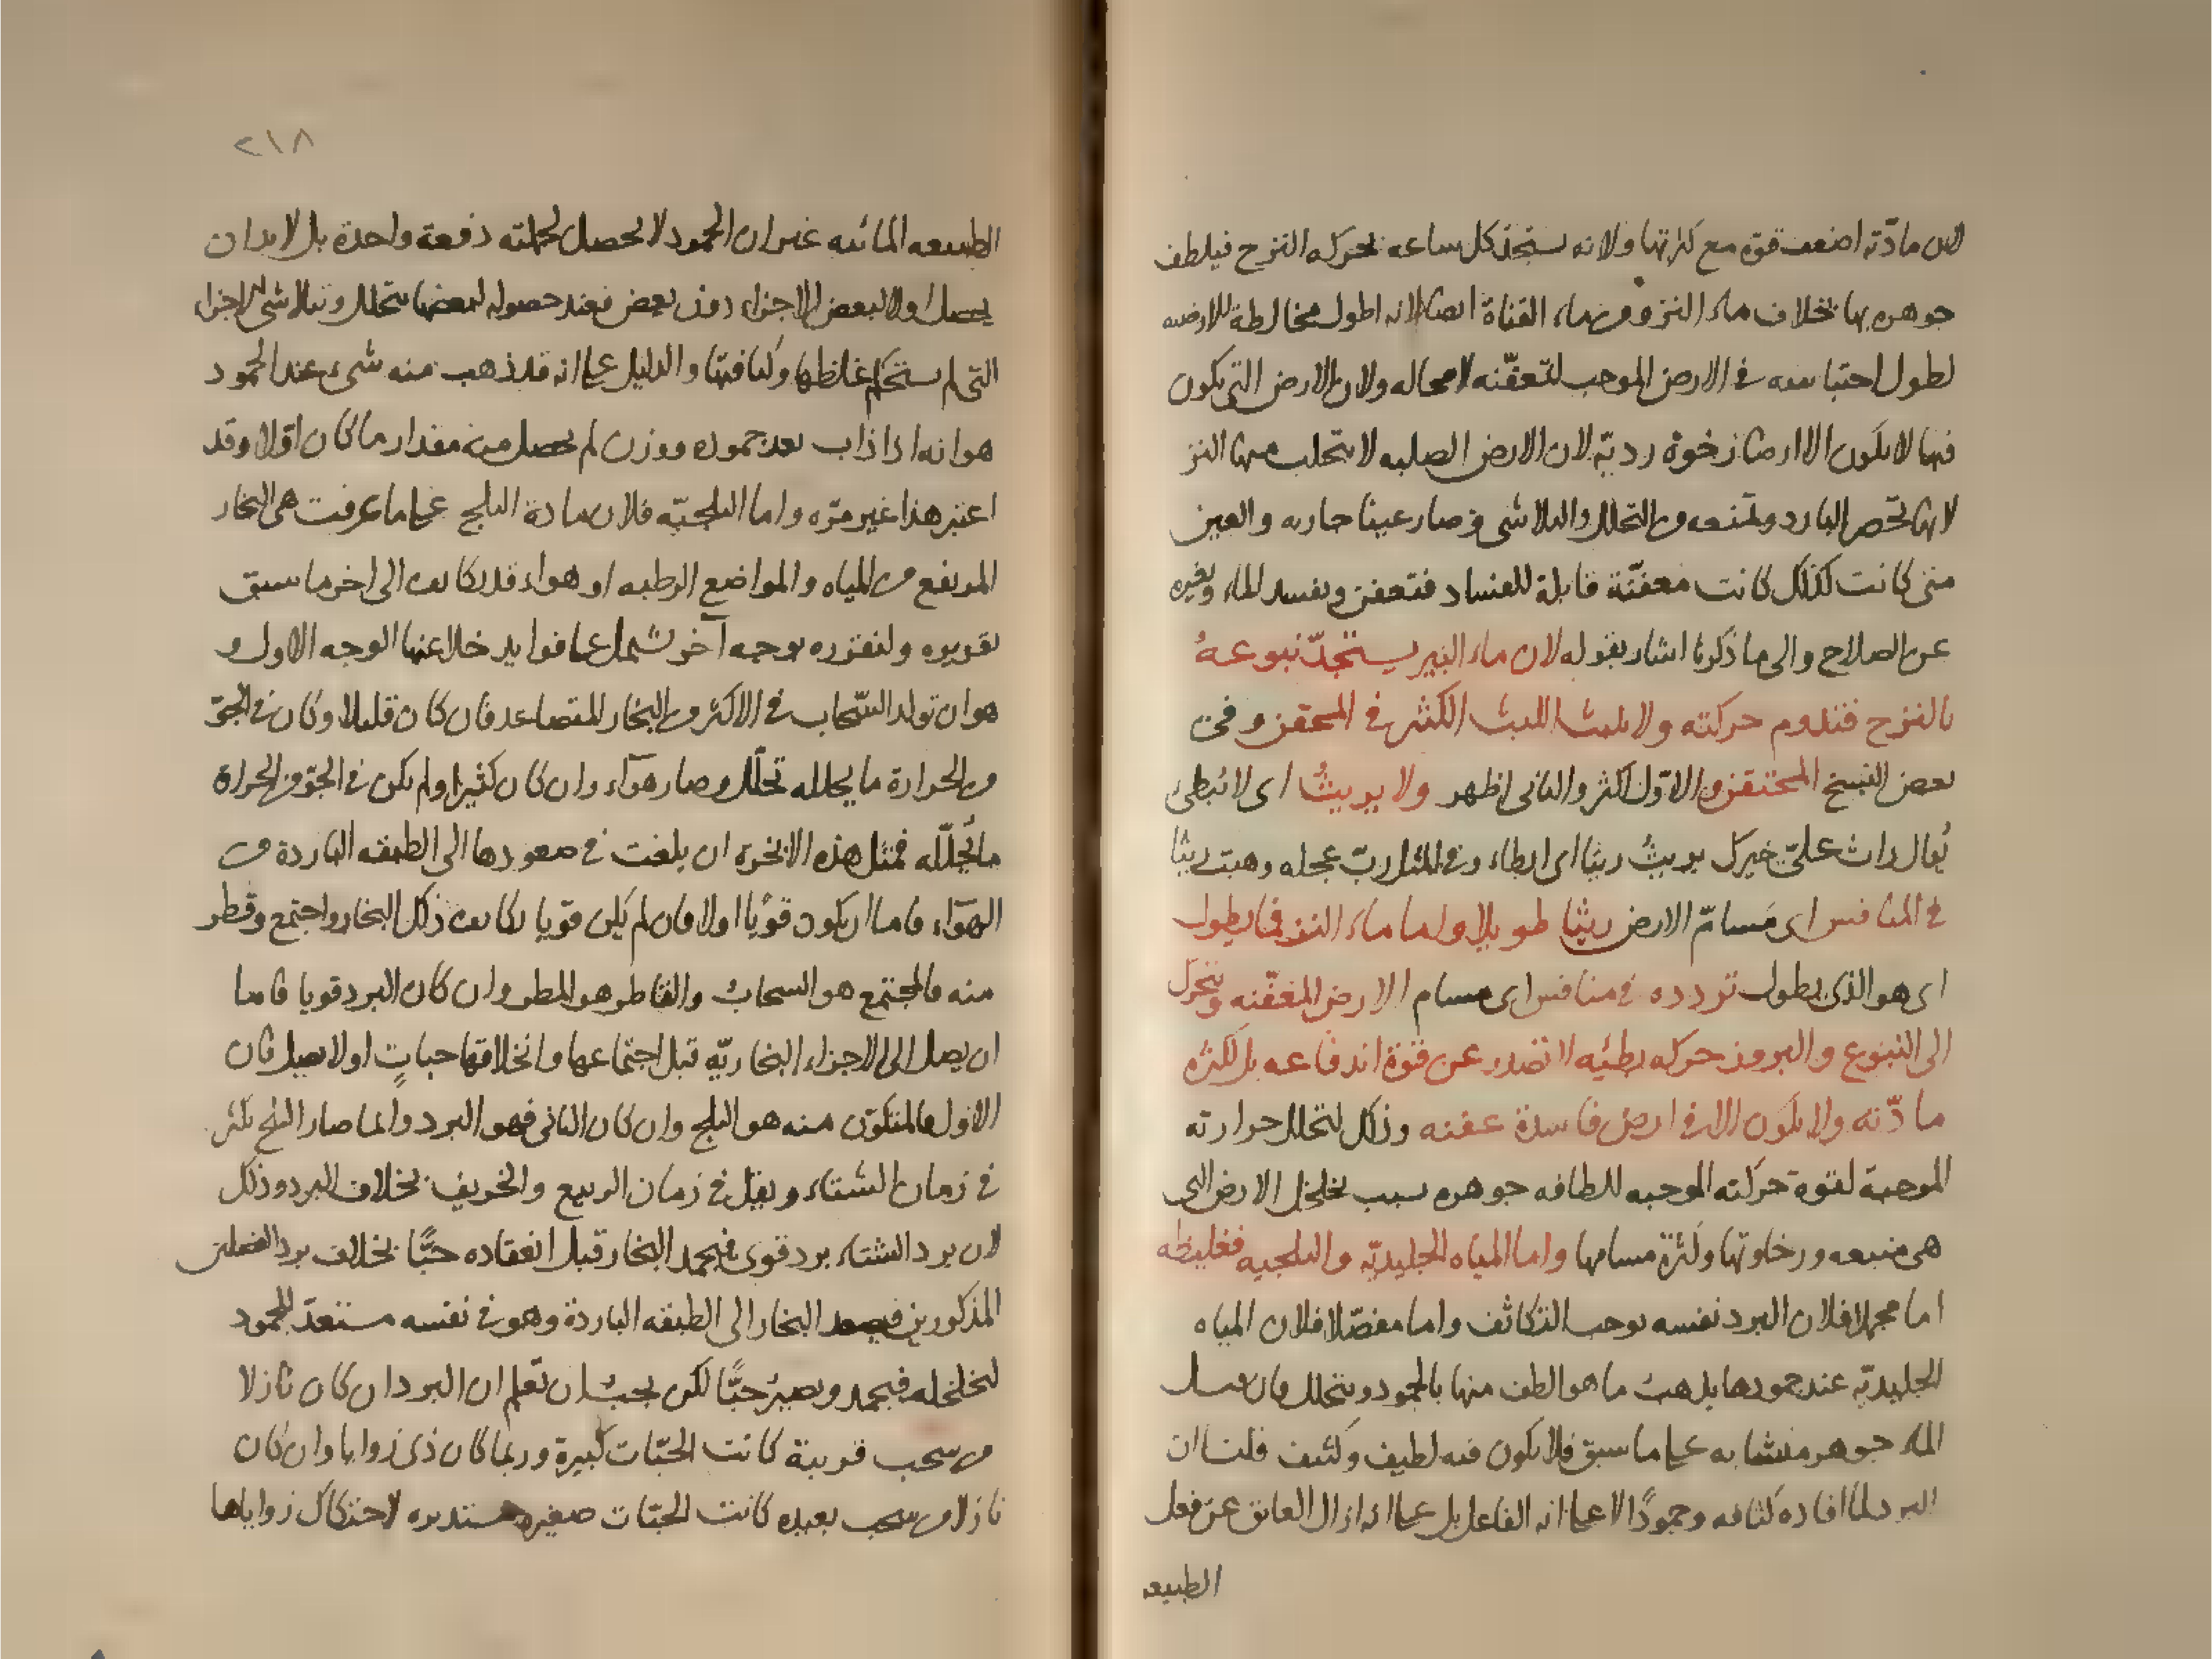 لان مادّته اضعف قوّة مع كثرتها ولانه يستجد كل ساعه بحركه النزح فيلطف
جوهره بها بخلاف ماء النز ومن ماء القناة ايضا لانه اطول مخالطة للارضيه
لطول احتباسه في الارض الموجب لتعفّنه لا محاله ولان الارض التي يكون
فيها لا يكون الا ارضا رخوة رديّة لان الارض الصلبه لا يتحلب منها النز
لانها تحصر البارد وتمنعه من التحلل والتلاشي فصار عينا جاريه والعين
متى كانت كذلك كانت معفنّة قابلة للفساد فتعفن ويفسد الماء ويغيره
عن الصلاح والى ما ذكرنا اشار بقوله لان ماء البير يستجدّ نبوعهُ
بالنزح فتدوم حركته ولا يلبث اللبث الكثير في المحقن وفي
بعض النسخ المحتقن والاوّل اكثر والثاني اظهر ولا يريثُ اى لا يُبطئ
يُقال راث علىّ خيرك يريثُ ريثا اى ابطاء وفي المثل ربّ عجله وهبت ريثا
في المنافس اى مَسامّ الارض ريثا طويلا واما ماء النز فما يطول
اى هو الذي يطول تردده في منافس اى مسام الارض المعفّنه ويتحرك
الى النبوع والبروز حركه بطيئه لا تصدر عن قوّة اندفاعه بل لكثرة
مادّته ولا يكون الا في ارض فاسدة عفنه وذلك لتحلل حرارته
الموجبة لقوة حركته الموجبه للطافه جوهره بسبب تخلخل الارض التي
هي منبعه ورخاوتها وكثرة مسامها واما المياه الجليديّه والثلجيه فغليظه
اما مجملا فلان البرد نفسه يوجب التكاثف واما مفصّلا فلان المياه
الجليديّه عند جمودها يذهبُ ما هو الطف منها بالجمود ويتحلل فان قيل
الماء جوهر متشابه على ما سبق فلا يكون فيه لطيف وكثيف قلنا ان
البرد لما افاده كثافه وجمودًا لا على انه الفاعل بل على انه ازال العائق عن فعل
الطبيعه
٢١٨
الطبيعه المائيه غير ان الجمود لا يحصل لجملته دفعة واحدة بل لا بد ان
يحصل اولا لبعض الاجزاء دون بعض فعند حصوله لبعضها يتحلل ويتلاشى الاجزاء
التي لم يستحكم غلظها وكثافتها والدليل على انه قد ذهب منه شيء عند الجمود
هو انه اذا ذاب بعد جموده ووزن لم يحصل منه مقدار ما كان اوّلا وقد
اعتبر هذا غير مرّه واما الثلجيّه فلان مادة الثلج على ما عرفت هي البخار
المرتفع من المياه والمواضع الرطبه او هواء قد تكاثف الى اخر ما سبق
تقريره ولنقرره بوجه آخر يشمل على فوايد خلا عنها الوجه الاول و
هو ان تولد السّحاب في الاكثر من البخار المتصاعد فان كان قليلا وكان في الجوّ
من الحرارة ما يحلله تحلّل وصار هوآء وان كان كثيرا ولم يكن في الجوّ من الحرارة
ما يُحلّله فمثل هذه الابخرة ان بلغت في صعودها الى الطبقه الباردة من
الهوآء فاما ان يكون قويّا اولا فان لم يكن قويا تكاثف ذلك البخار واجتمع وقطر
منه فالمجتمع هو السحابُ والقاطر هو المطر وان كان البرد قويا فاما
ان يصل الى الاجزاء البخاريّه قبل اجتماعها وانخلاقها حباتٍ اولا يصل فان
الاول فالمتكوّن منه هو الثلج وان كان الثاني فهو البرد وانما صار الثلج يكثر
في زمان الشتاء ويقلّ في زمان الربيع والخريف بخلاف البرد وذلك
لان برد الشتاء برد قوى فيجمد البخار قبل انعقاده حبًّا بخلاف برد الفصلين
المذكورين فيصعد البخار الى الطبقه الباردة وهو في نفسه مستعدّ للجمود
لتخلخله فيجمد ويصير حبًّا لكن يجبُ ان تعلم ان البرد ان كان نازلا
من سحب قريبة كانت الحبّات كبيرة وربما كان ذى زوايا وان كان
نازلا من سحب بعيده كانت الحبّات صغيره مستديره لاحتكاك زواياها